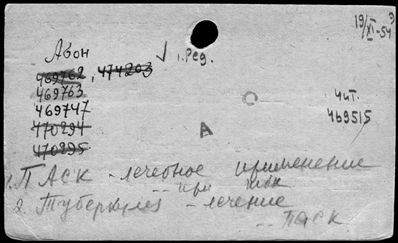 19/XI-54
Авон
1. Ред.
469762, 474203
469763
469747
470294
470295
чит.
469515
А
1. ПАСК - лечебное применение
-- при
2. Туберкулез - лечение
-- ПАСК